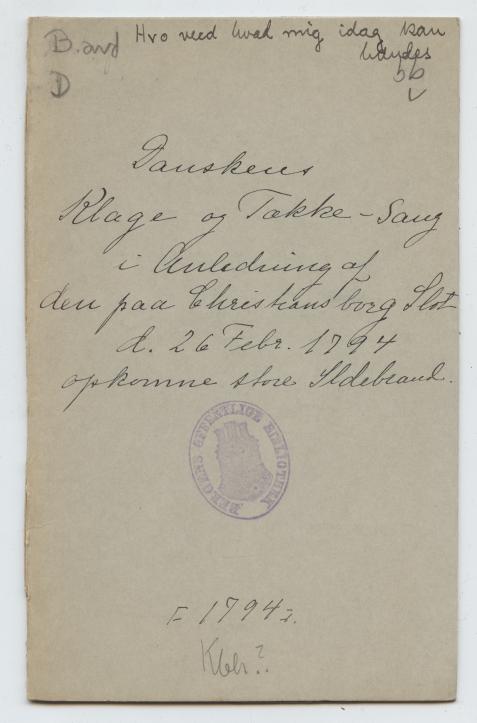 B. avd
D
Hvo veed hvad mig idag kan
hændes
Danskens
Klage og Takke-Sang
i Anledning af
den paa Christiansborg Slot
d. 26 Febr. 1794
opkomne store Ildebrand.
BERGENS OFFENTLIGE BIBLIOTHEK
[1794].
Kbh?